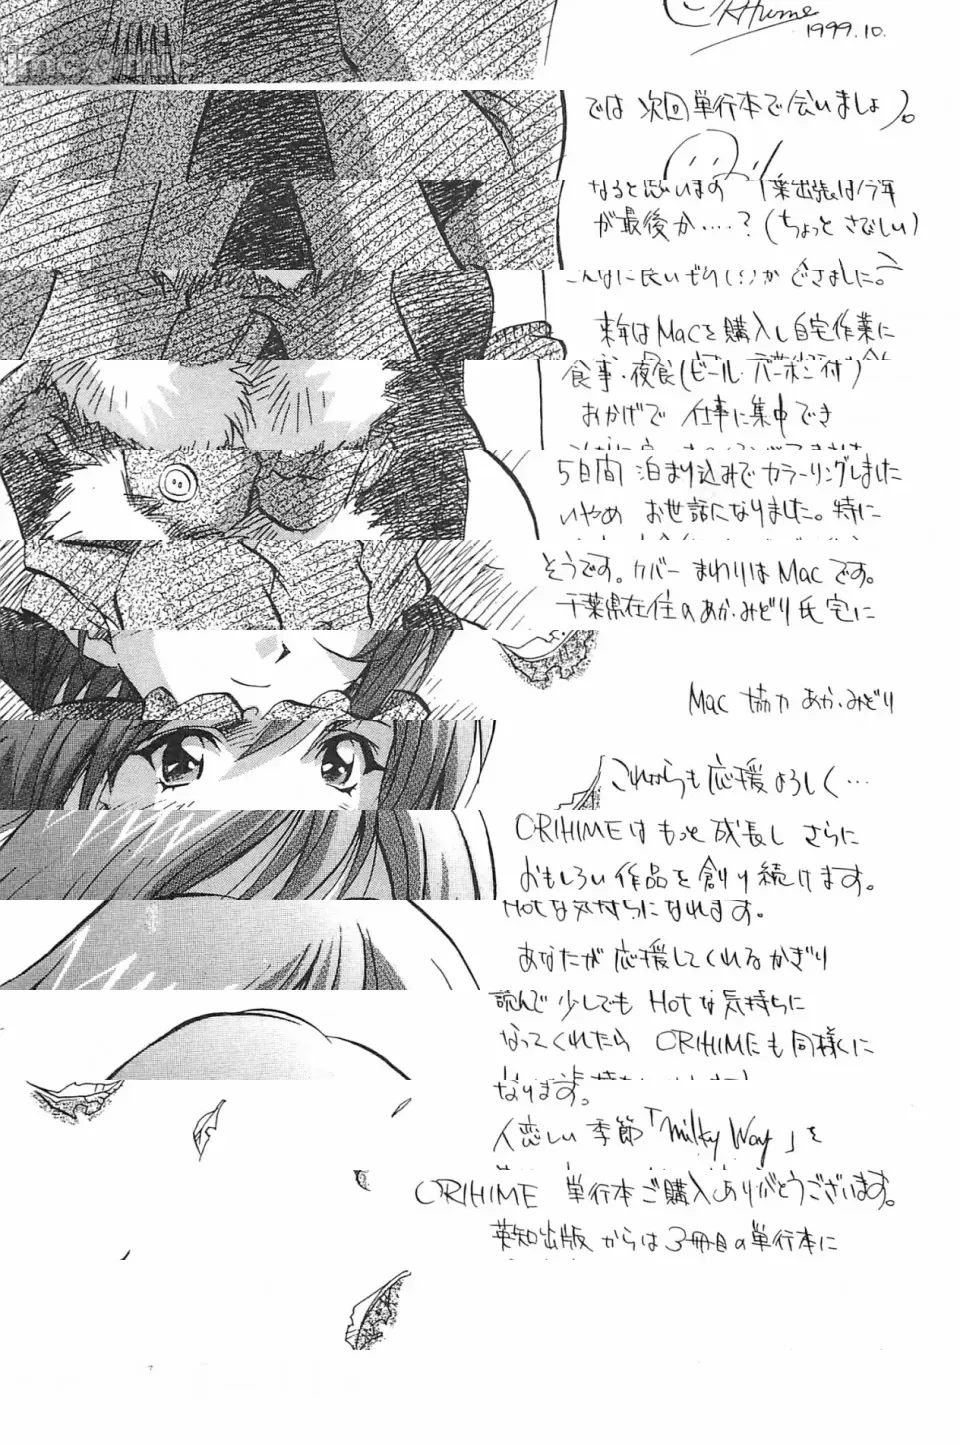 1999.10.
では 次回単行本で会いましょう。
なると思います 千葉出張は今年
が最後か‥‥？(ちょっと さびしい)
来年はMacを購入し自宅作業に
食事・夜食(ビール・バーボン付)
おかげで 仕事に集中でき
5日間 泊まり込みでカラーリングしました
いやぁ お世話になりました。特に
そうです。カバー まわりは Mac です。
千葉県在住の あか・みどり 氏宅に
Mac 協力 あか・みどり
これからも応援よろしく…
ORIHIMEは もっと 成長し さらに
おもしろい 作品を 創り 続けます。
Hotな気持ちになれます。
あなたが 応援してくれるかぎり
読んで 少しでも Hot な気持ちに
なってくれたら ORIHIMEも同様に
なります。
人恋しい 季節「Milky Way」を
ORIHIME 単行本ご購入ありがとうございます。
英知出版からは 3冊目の単行本に